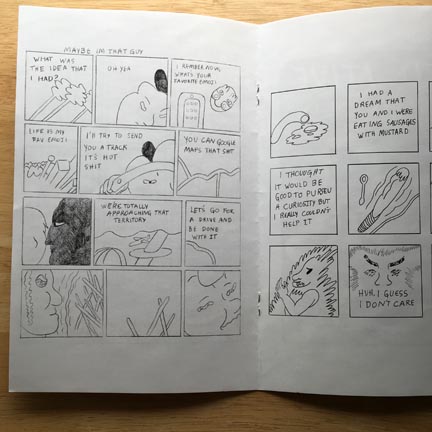 MAYBE IM THAT GUY
WHAT WAS
THE IDEA THAT
I HAD?
OH YEA
I REMBER NOW,
WHATS YOUR
FAVORITE EMOJI
LIFE IS MY
FAV EMOJI
I'LL TRY TO SEND
YOU A TRACK
IT'S HOT
SHIT
YOU CAN GOOGLE
MAPS THAT SHIT
WE'RE TOTALLY
APPROACHING THAT
TERRITORY
LET'S GO FOR
A DRIVE AND
BE DONE
WITH IT
I HAD A
DREAM THAT
YOU AND I WERE
EATING SAUSAGES
WITH MUSTARD
I THOUGHT
IT WOULD BE
GOOD TO PURSEU
A CURIOSITY BUT
I REALLY COULDN'T
HELP IT
HUH, I GUESS
I DONT CARE